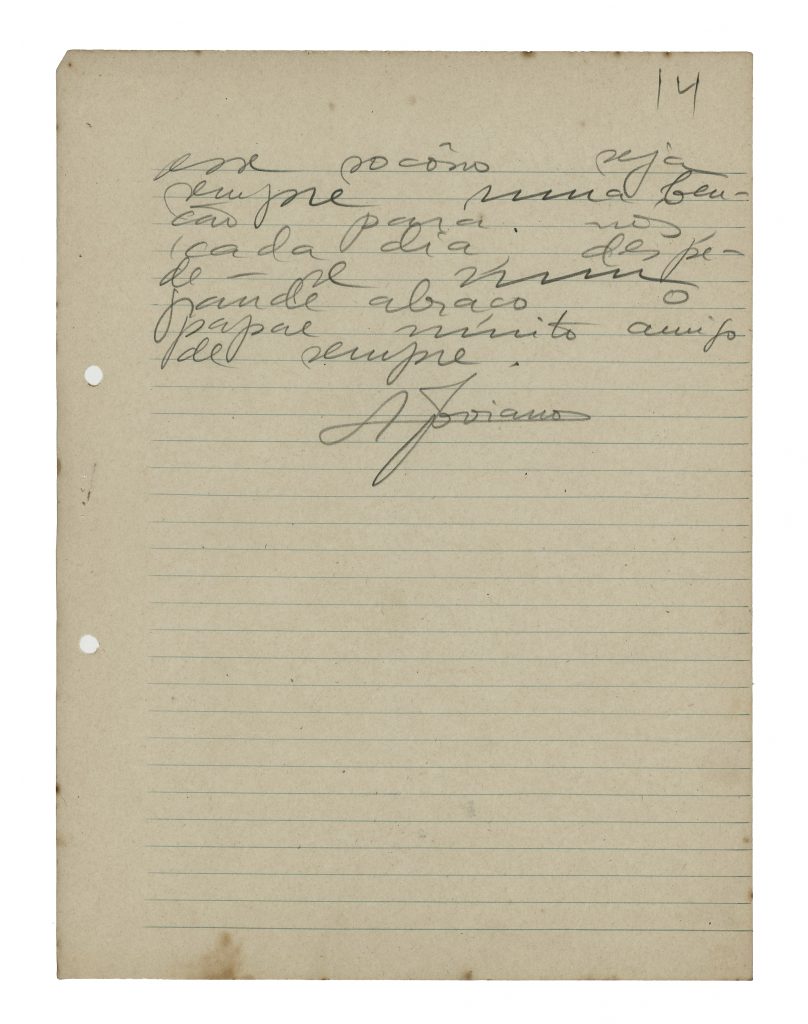 14
esse socôrro seja
sempre uma ben-
ção para nós
cada dia, despe-
de-se num
grande abraço o
papae muito amigo
de sempre.
A Joviano